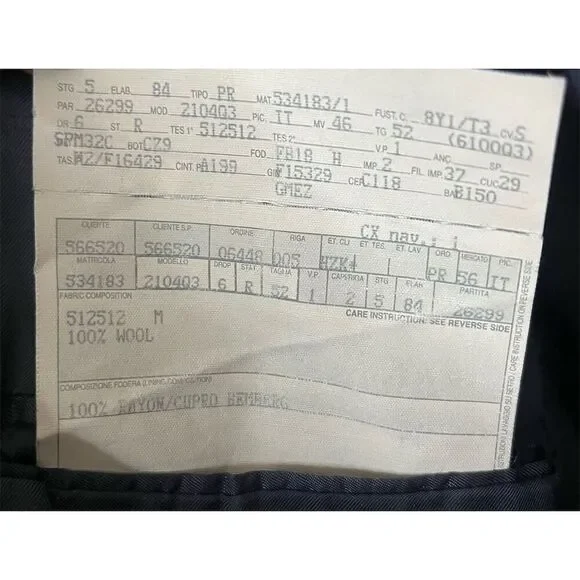 STG 5 ELAB. 84 TIPO PR MAT. 534183/1
PAR 26299 MOD 210403 PIC. IT MV 46 FUST.C. 8Y1/T3 CV.S
DR 6 ST R TES 1° 512512 TES 2° TG 52 (610003)
SPM32C BOT CZ9 FOD FB18 H V.P 1 ANC. SP.
TAS. M2/F16429 CINT. P A199 F15329 IMP. 2 FIL. IMP. 37 CUC 29
GMEZ CER C118 BA B150
CX nav.: i
CLIENTE CLIENTE S.P. ORDINE RIGA ET. CLI ET TES. ET. LAV. ORD. MERCATO PIC.
566520 566520 06448 005 HZK# PR 56 IT
MATRICOLA MODELLO DROP STAT. TAGLIA V.P. CAPSTRIGA STG ELAB. PARTITA
534183 210403 6 R 52 1 2 5 84 26299
FABRIC COMPOSITION CARE INSTRUCTION: SEE REVERSE SIDE
512512 M
100% WOOL
COMPOSIZIONE FODERA (LINING COMPOSITION)
100% RAYON/CUPRO BEMBERG
ISTRUZIONI LAVAGGIO SU RETRO / CARE INSTRUCTION ON REVERSE SIDE